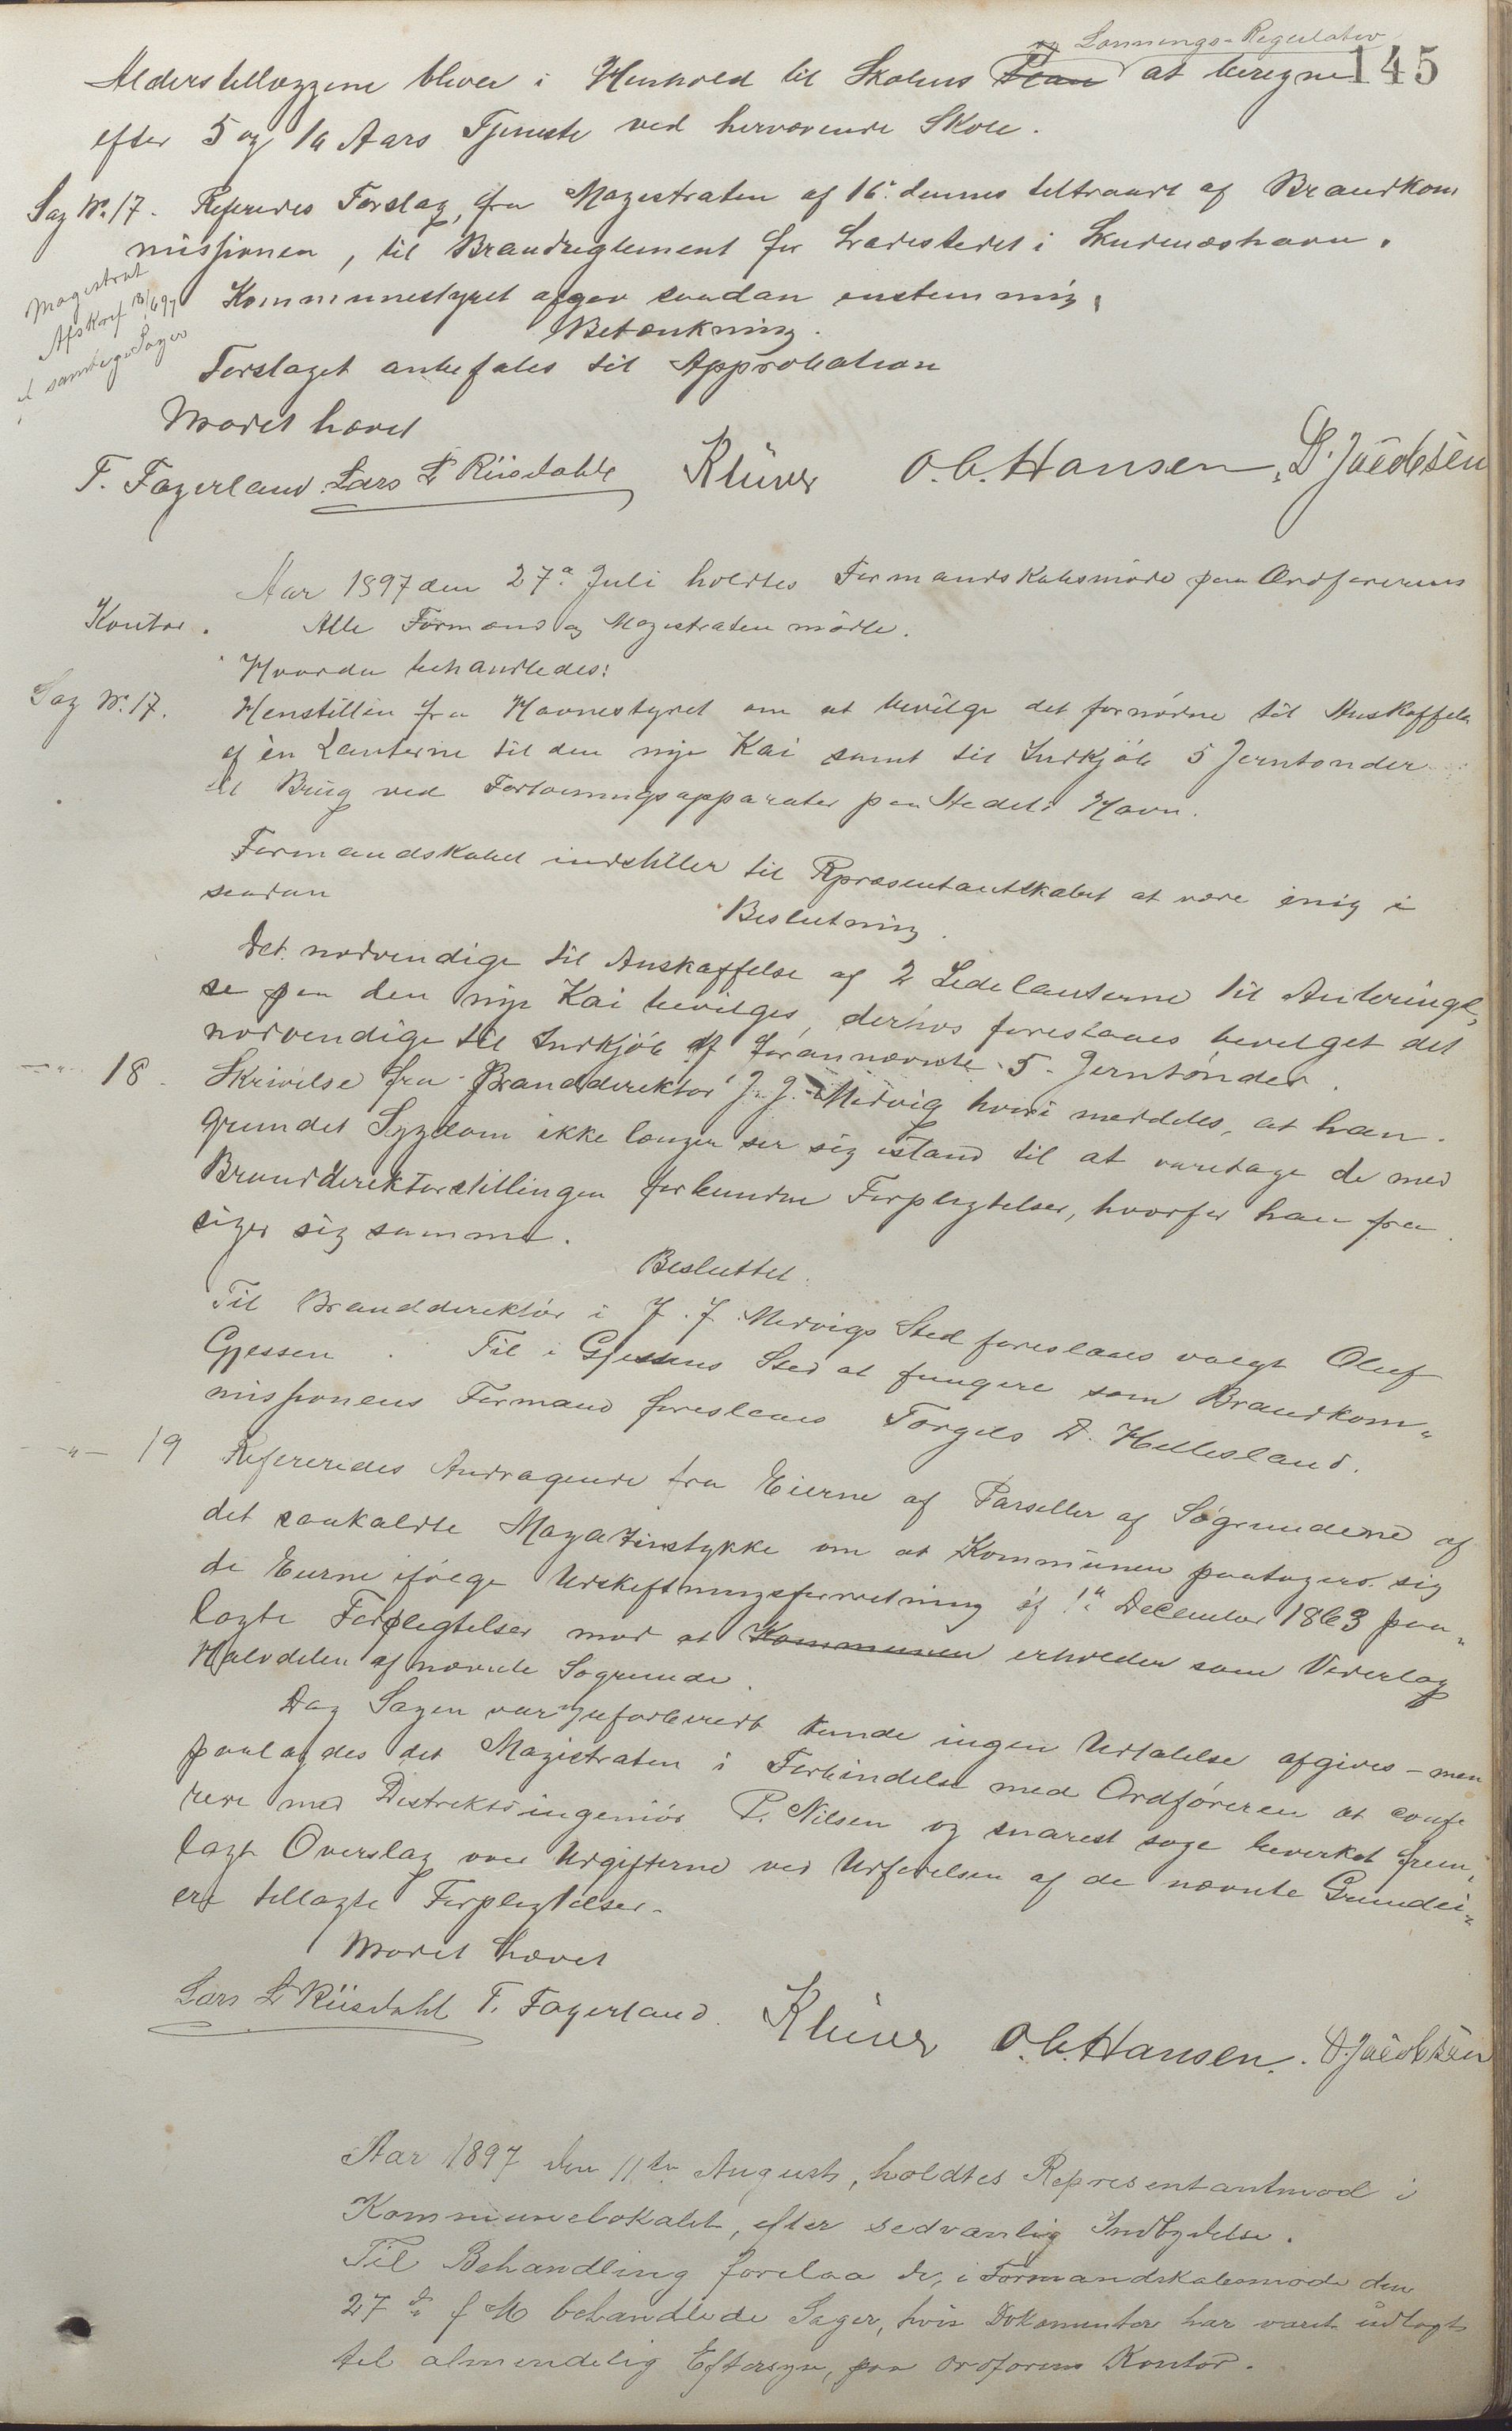 og Lønnings-Regulativ
145
Alderstillæggene bliver i Henhold til Skolens Plan at beregne
efter 5 og 10 Aars Tjeneste ved herværende Skole.
Sag No. 17. Refereredes Forslag, fra Magistraten af 16. dennes tiltraadt af Brandkom
missionen, til Brandreglement for Ladestedet i Skudeneshavn.
Magistrat
Afskrift 18/6 97
samtlige Sager
Kommunestyret afgav saadan enstemmig
Betænkning.
Forslaget anbefales til Approbation
Mødet hævet
T. Fagerland. Lars L Riisdahl Klüver O. C. Hansen, D. Jacobsen
Aar 1897 den 27de Juli holdtes Formandskabsmøde paa Ordførerens
Kontor. Alle Formænd og Magistraten mødte.
Hvorda behandledes:
Sag No. 17. Henstillen fra Havnestyret om at bevilge det fornødne til Anskaffelse
af èn Lanterne til den nye Kai samt til Indkjøb 5 Jerntønder
til Brug ved Fortøiningsapparater paa Stedets Havn.
Formandskabet indstiller til Repræsentantskabet at være enig i
saadan
Beslutning.
Det nødvendige til Anskaffelse af 2 Ledelanterne til Anbringel,
se paa den nye Kai bevilges, derhos foreslaaes bevilget det
nødvendige til Indkjøb af forannævnte 5 Jerntønder.
-"- 18. Skrivelse fra Branddirektør J. J. Medvig hvori meddeles, at han
grundet Sygdom ikke længer ser sig istand til at varetage de med
Branddirektørstillingen forbundne Forpligtelser, hvorfor han fra
siger sig samme.
Besluttet.
Til Branddirektør i J. J. Medvigs Sted foreslaaes valgt Oluf
Gjessen. Til i Gjessens Sted at fungere som Brandkom-
missionens Formand foreslaaes Torgils A. Hellesland.
-"- 19 Refereredes Andragende fra Eierne af Parseller af Søgrundene af
det saakaldte Magazinstykke om at Kommunen paatager sig
de Eierne ifølge Udskiftningsforretning af 1ste December 1863 paa-
lagte Forpligtelser mod at Kommunen erholder som Vederlag
Halvdelen af nævnte Søgrunde.
Dag Sagen var uforberedt kunde ingen Udtalelse afgives – men
paalagdes det Magistraten i Forbindelse med Ordføreren at confe
rere med Distriktsingeniør P. Nilsen og snarest søge bevirket frem,
lagt Overslag over Udgifterne ved Udførelsen af de nævnte Grundei-
ere tillagte Forpligtelser.
Mødet hævet
Lars L Riisdahl T. Fagerland. Klüver O. C. Hansen. D. Jacobsen
Aar 1897 den 11te August, holdtes Repræsentantmød i
Kommunelokalet, efter sedvanlig Indbydelse.
Til Behandling forelaa de, i Formandskabsmøde den
27de f M behandlede Sager, hvis Dokumenter har været udlagt
til almindelig Eftersyn, paa Ordførens Kontor.